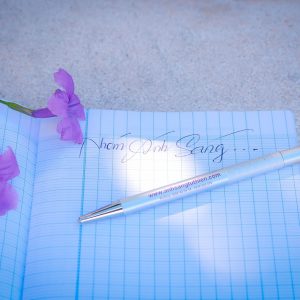 Nhóm Ánh Sáng...
www.anhsangtuthien.com